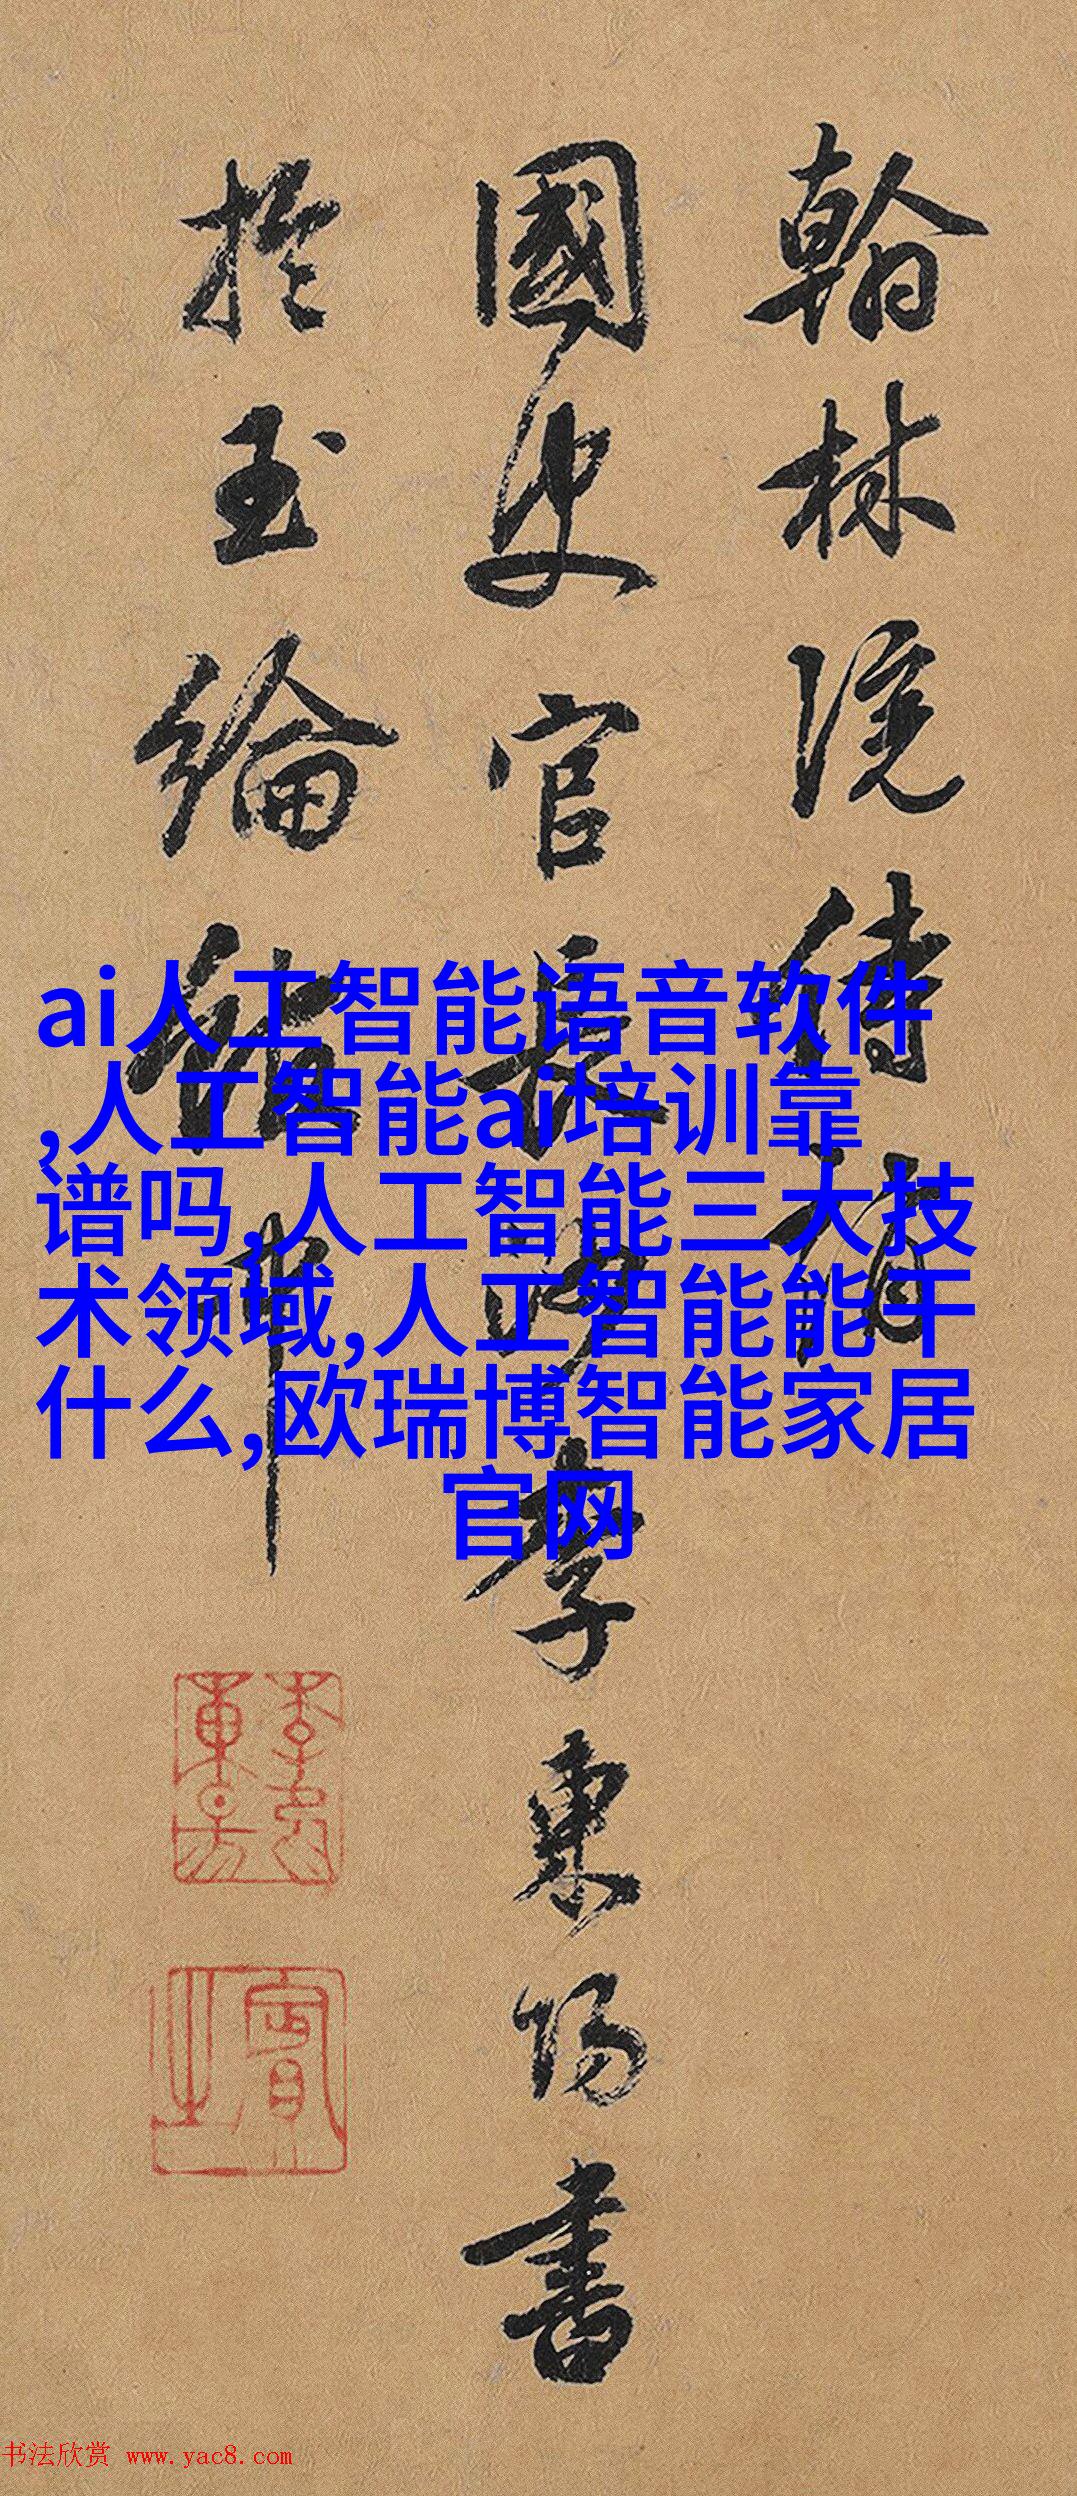 翰林院侍
國史官長沙李東陽書
於玉綸館中
ai人工智能语音软件
,人工智能ai培训靠
谱吗,人工智能三大技
术领域,人工智能能干
什么,欧瑞博智能家居
官网
賓之
书法欣赏 www.yac8.com